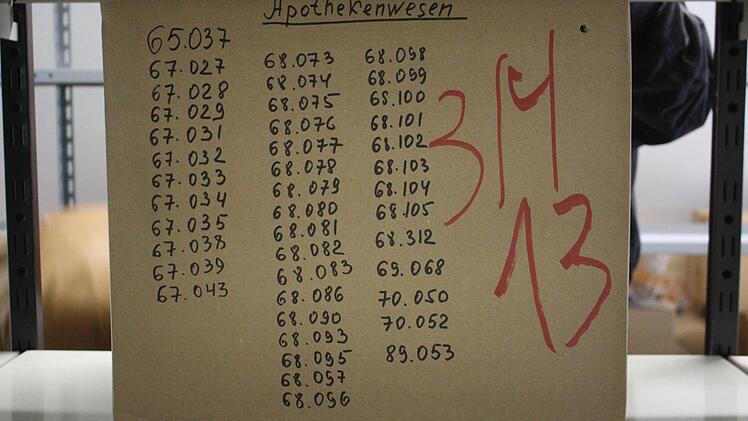 Apothekenwesen
65.037
67.027
67.028
67.029
67.031
67.032
67.033
67.034
67.035
67.038
67.039
67.043
68.073
68.074
68.075
68.076
68.077
68.078
68.079
68.080
68.081
68.082
68.083
68.086
68.090
68.093
68.095
68.097
68.096
68.098
68.099
68.100
68.101
68.102
68.103
68.104
68.105
68.312
69.068
70.050
70.052
89.053
3
13